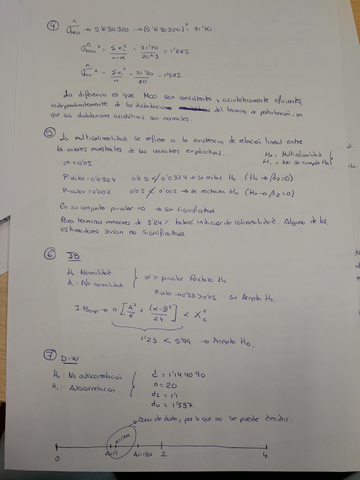 ④ σ̂ MCO → 5'630320 → (5'630320)² = 31'70
σ̂² MCO = Σe²ᵢ / n-k = 31'70 / 20-3 = 1'865.
σ̂² = Σe²ᵢ / n = 31'70 / 20 = 1'585.
La diferencia es que MCO son consistentes y asintóticamente eficientes,
independientemente de las distribuciones del término de perturbación, ya
que sus distribuciones asintóticas son normales.
⑤ La multicolinealidad se refiere a la existencia de relación lineal entre
los valores muestrales de las variables explicativas.
H₀ = Multicolinealidad
H₁ = No se cumple H₀
α = 0'05
P-valor = 0'0324 0'05 0'0324 → se rechaza H₀ (H₀ → β₂=0)
P-valor = 0'002 0'05 0'002 → se rechaza H₀ (H₀ → β₃=0)
En su conjunto p-valor → 0 → son significativas.
Para términos menores de 3'24% habrá indicios de colinealidad. Alguno de los
estimadores serían no significativos.
⑥ JB
H₀ Normalidad
H₁ No normalidad
α > p-valor Rechazo H₀
P-valor → 0'53 > 0'05 Se Acepta H₀
JB exp → n [ A² / 6 + (α-3)² / 24 ] < X²₂
1'23 < 5'99 → Acepto H₀.
⑦ D-W
H₀: No autocorrelación
H₁: Autocorrelación
d = 1'144090
n = 20
dL = 1'1
du = 1'537
Zona de duda, por lo que no se puede decidir.
0 2 4